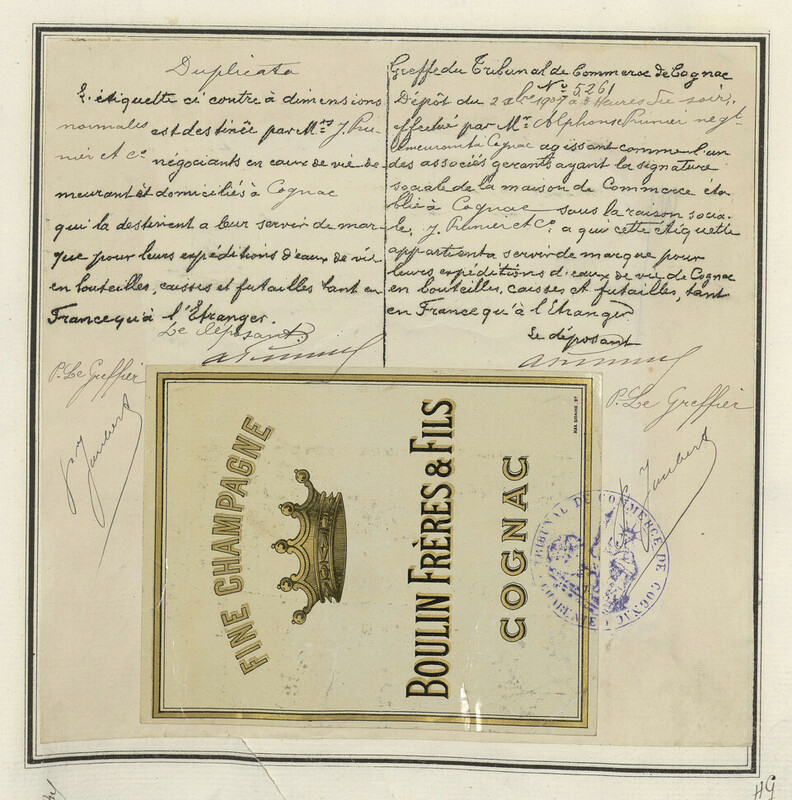 Duplicata
L'étiquette ci contre à dimensions
normales est destinée par Mrs J. Pru-
nier et Cie négociants en eaux de vie de-
meurant et domiciliés à Cognac
qui la destinent a leur servir de mar-
que pour leurs expéditions d'eaux de vie
en bouteilles, caisses et futailles tant en
France qu'à l'Étranger.
Le déposant.
P. Le Greffier
Joubert
Greffe du Tribunal de Commerce de Cognac
No 5.261
Dépôt du 2 xbre 1907 à Heures du soir,
effectué par Mr Alphonse Prunier négt
demeurant à Cognac agissant comme l'un
des associés gerants ayant la signature
sociale de la maison de Commerce éta-
blie à Cognac sous la raison socia-
le, J. Prunier et Co. a qui cette étiquette
appartient a servir de marque pour
leurs expéditions d'eaux de vie de Cognac
en bouteilles, caisses et futailles, tant
en France qu'à l'Etranger
Le déposant
P. Le Greffier
Joubert
FINE CHAMPAGNE
BOULIN FRÈRES & FILS
COGNAC
TRIBUNAL DE COMMERCE DE COGNAC